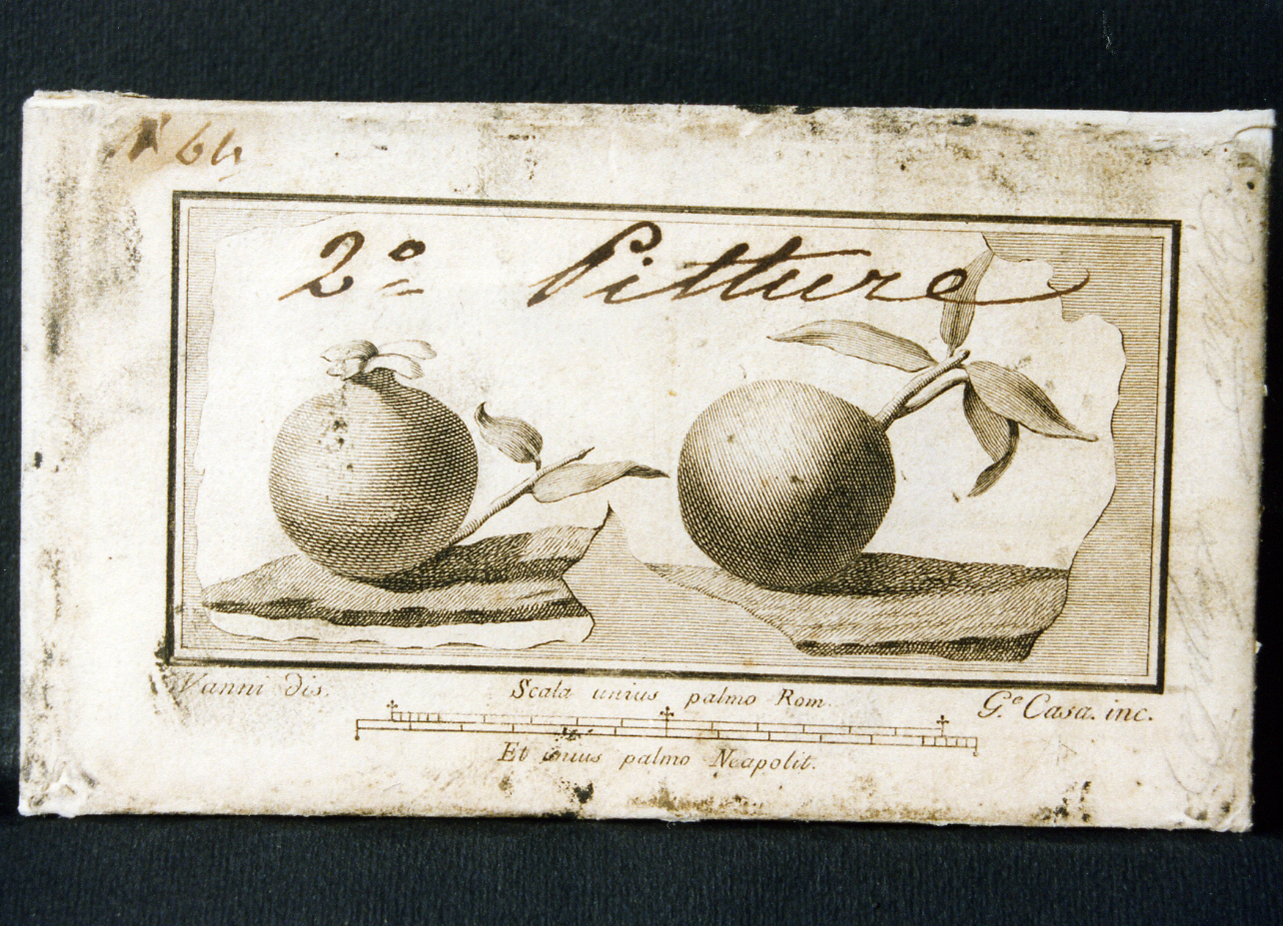 N 64
2º Pitture
Vanni dis.
Scala unius palmo Rom.
G.e Casa. inc.
Et unius palmo Neapolit.